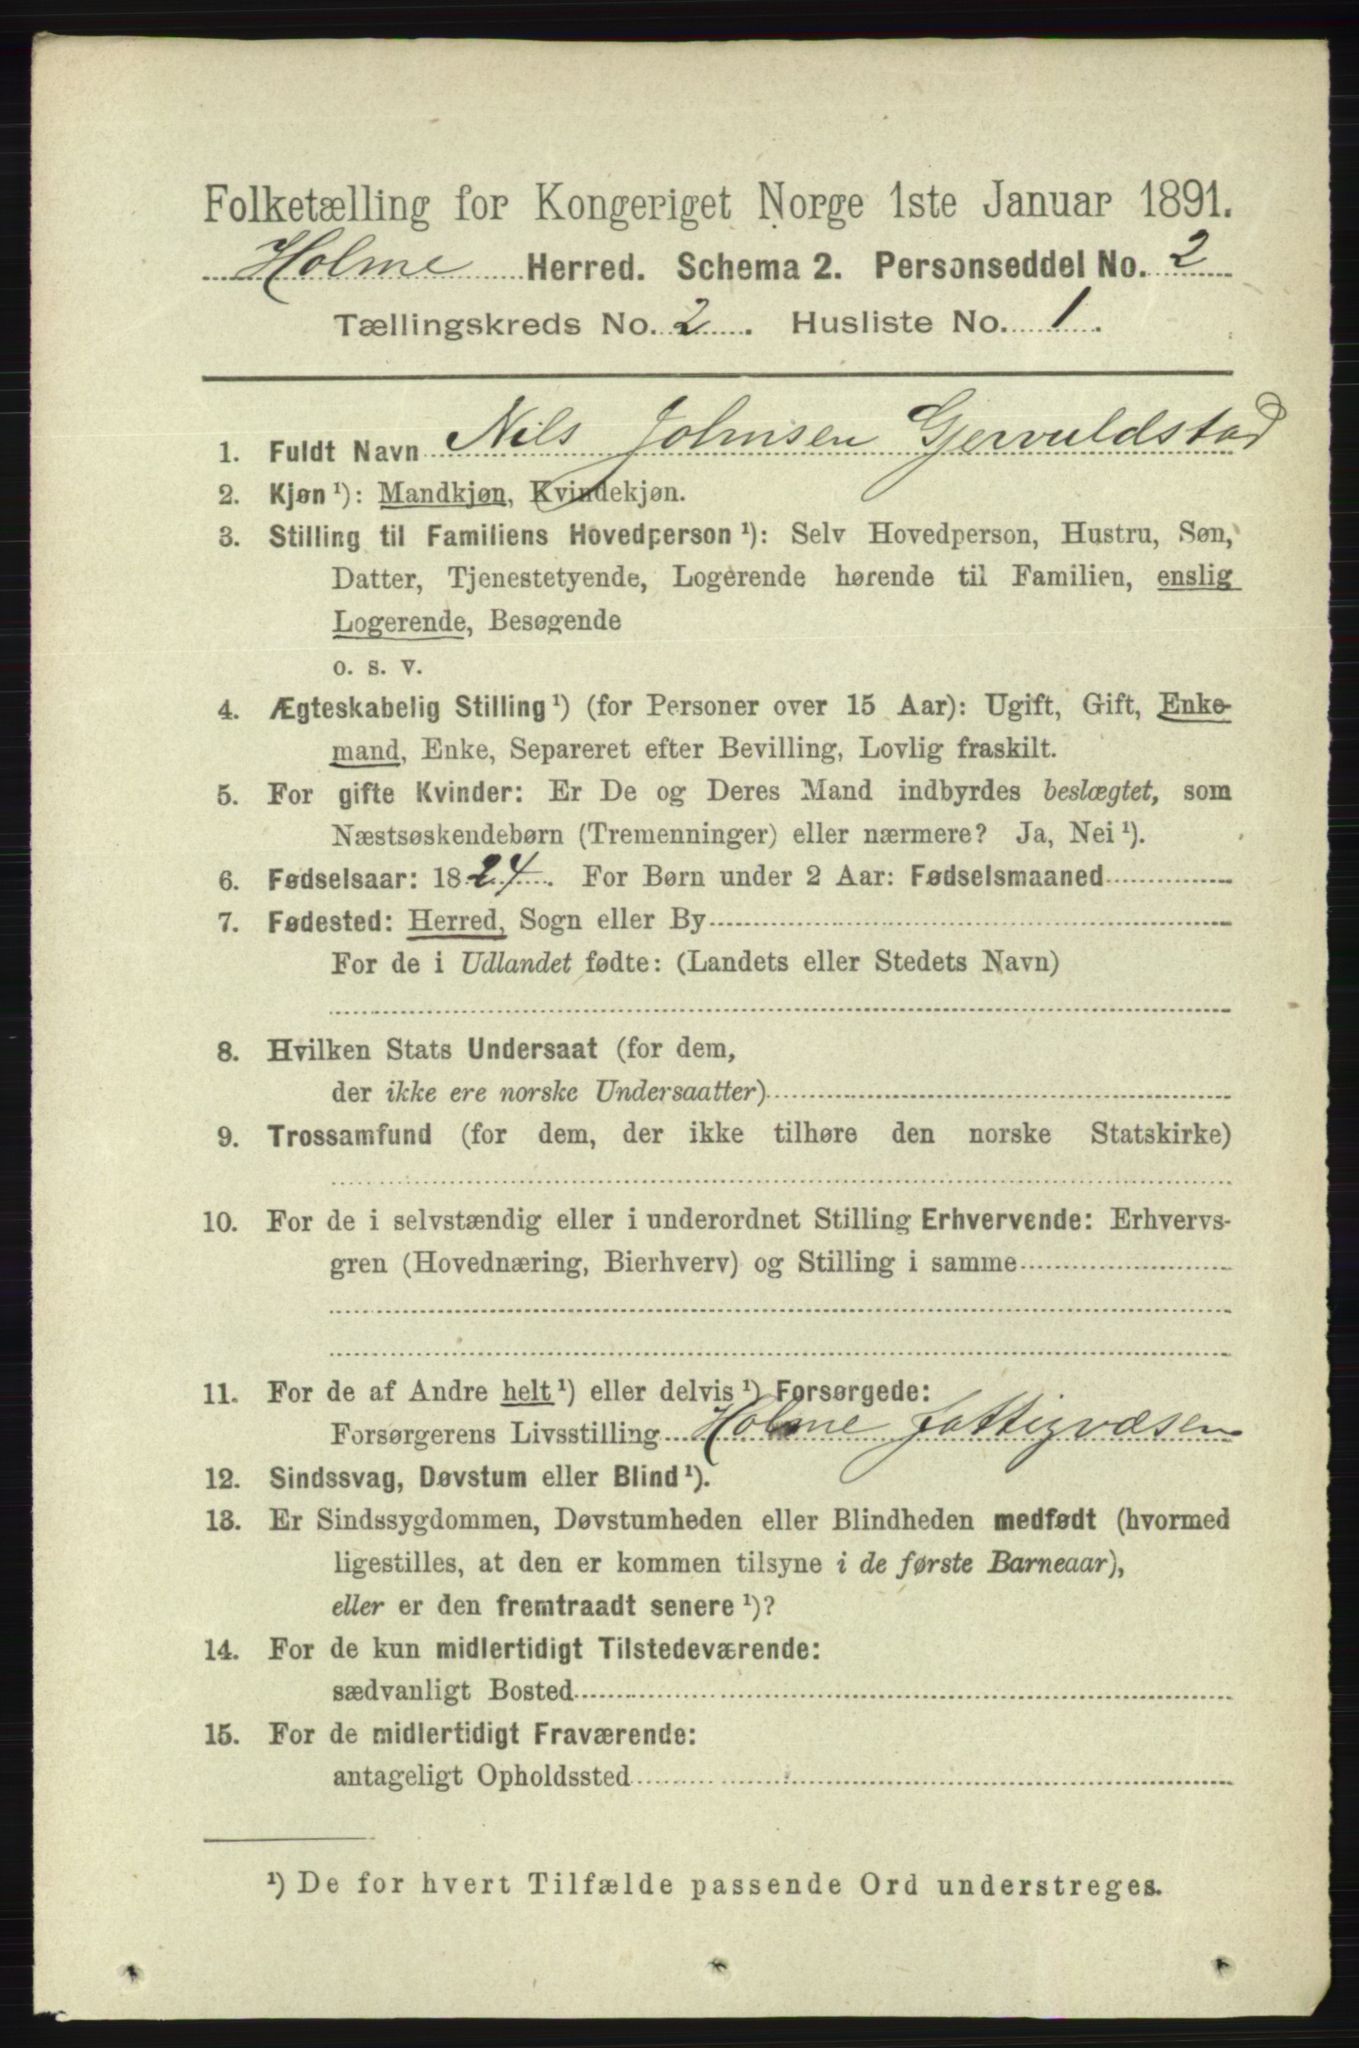 Folketælling for Kongeriget Norge 1ste Januar 1891.
Holme Herred. Schema 2. Personseddel No. 2
Tællingskreds No. 2. Husliste No. 1.
1. Fuldt Navn Nils Johnsen Gjervuldstad
2. Kjøn ¹): Mandkjøn, Kvindekjøn.
3. Stilling til Familiens Hovedperson ¹): Selv Hovedperson, Hustru, Søn,
Datter, Tjenestetyende, Logerende hørende til Familien, enslig
Logerende, Besøgende
o. s. v.
4. Ægteskabelig Stilling ¹) (for Personer over 15 Aar): Ugift, Gift, Enke-
mand, Enke, Separeret efter Bevilling, Lovlig fraskilt.
5. For gifte Kvinder: Er De og Deres Mand indbyrdes beslægtet, som
Næstsøskendebørn (Tremenninger) eller nærmere? Ja, Nei ¹).
6. Fødselsaar: 1824. For Børn under 2 Aar: Fødselsmaaned
7. Fødested: Herred, Sogn eller By
For de i Udlandet fødte: (Landets eller Stedets Navn)
8. Hvilken Stats Undersaat (for dem,
der ikke ere norske Undersaatter)
9. Trossamfund (for dem, der ikke tilhøre den norske Statskirke)
10. For de i selvstændig eller i underordnet Stilling Erhvervende: Erhvervs-
gren (Hovednæring, Bierhverv) og Stilling i samme
11. For de af Andre helt ¹) eller delvis ¹) Forsørgede:
Forsørgerens Livsstilling Holme Fattigvæsen
12. Sindssvag, Døvstum eller Blind ¹).
13. Er Sindssygdommen, Døvstumheden eller Blindheden medfødt (hvormed
ligestilles, at den er kommen tilsyne i de første Barneaar),
eller er den fremtraadt senere ¹)?
14. For de kun midlertidigt Tilstedeværende:
sædvanligt Bosted
15. For de midlertidigt Fraværende:
antageligt Opholdssted
¹) De for hvert Tilfælde passende Ord understreges.